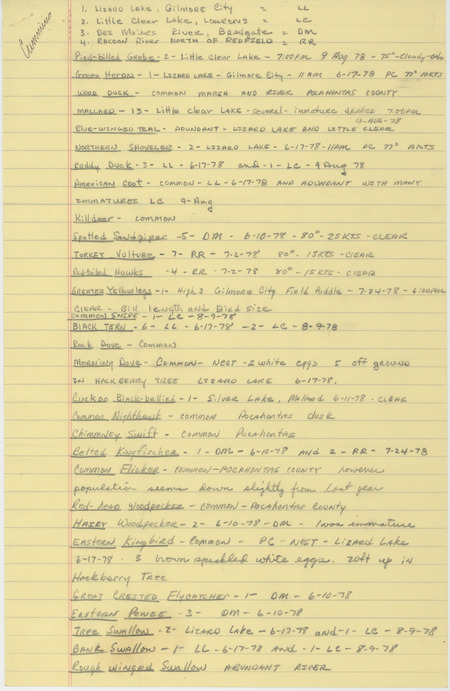 Cummins
1. Lizard Lake, Gilmore City = LL
2. Little Clear Lake, Laurens = LC
3. Des Moines River, Bradgate = DM
4. Racoon River North of Redfield = RR
Pied-billed Grebe - 2 - Little Clear Lake - 7:00PM 9 Aug 78 - 75° - Cloudy
Green Heron - 1 - Lizard Lake - Gilmore City - 11AM 6-17-78 PC 77° 10KTS
Wood Duck - common marsh and River Pocahontas County
Mallard - 13 - Little Clear Lake - several - immature 7:00PM
Aug-78
Blue-winged Teal - abundant - Lizard Lake and Little Clear
Northern Shoveler - 2 - Lizard Lake - 6-17-78 - 11AM PC 77° 10KTS
Ruddy Duck - 3 - LL - 6-17-78 and - 1 - LC - 9 Aug 78
American Coot - common - LL - 6-17-78 and abundant with many
immatures LC 9-Aug
Killdeer - common
Spotted Sandpiper - 5 - DM - 6-10-78 - 80° - 25KTS - clear
Turkey Vulture - 7 - RR - 7-2-78 80° - 15KTS - clear
Red-tailed Hawks - 4 - RR - 7-2-78 80° - 15KTS - clear
Greater Yellowlegs - 1 - Gilmore City Field Puddle - 7-24-78 - 6:00PM
Clear - Bill length and Bird size
Common Snipe - 1 - LC - 8-9-78
Black Tern - 6 - LL - 6-17-78 - 2 - LC - 8-9-78
Rock Dove - common
Morning Dove - common - nest - 2 white eggs 5 off ground
in Hackberry Tree Lizard Lake 6-17-78.
Cuckoo Black-bellied - 1 - Silver Lake, Mallard 6-11-78 - clear
Common Nighthawk - common Pocahontas dusk
Chimney Swift - common Pocahontas
Belted Kingfischer - 1 - DM - 6-10-78 and 2 - RR - 7-24-78
Common Flicker - common - Pocahontas County however
population seems down slightly from last year
Red-head Woodpecker - common - Pocahontas County
Hairy Woodpecker - 2 - 6-10-78 - DM - 1 was immature
Eastern Kingbird - common - PC - nest - Lizard Lake
6-17-78 - 3 brown speckled white eggs. 20ft up in
Hackberry Tree
Great Crested Flycatcher - 1 - DM - 6-10-78
Eastern Pewee - 3 - DM - 6-10-78
Tree Swallow - 2 - Lizard Lake - 6-17-78 and - 1 - LC - 8-9-78
Bank Swallow - 1 - LL - 6-17-78 and - 1 - LC - 8-9-78
Rough winged Swallow abundant river